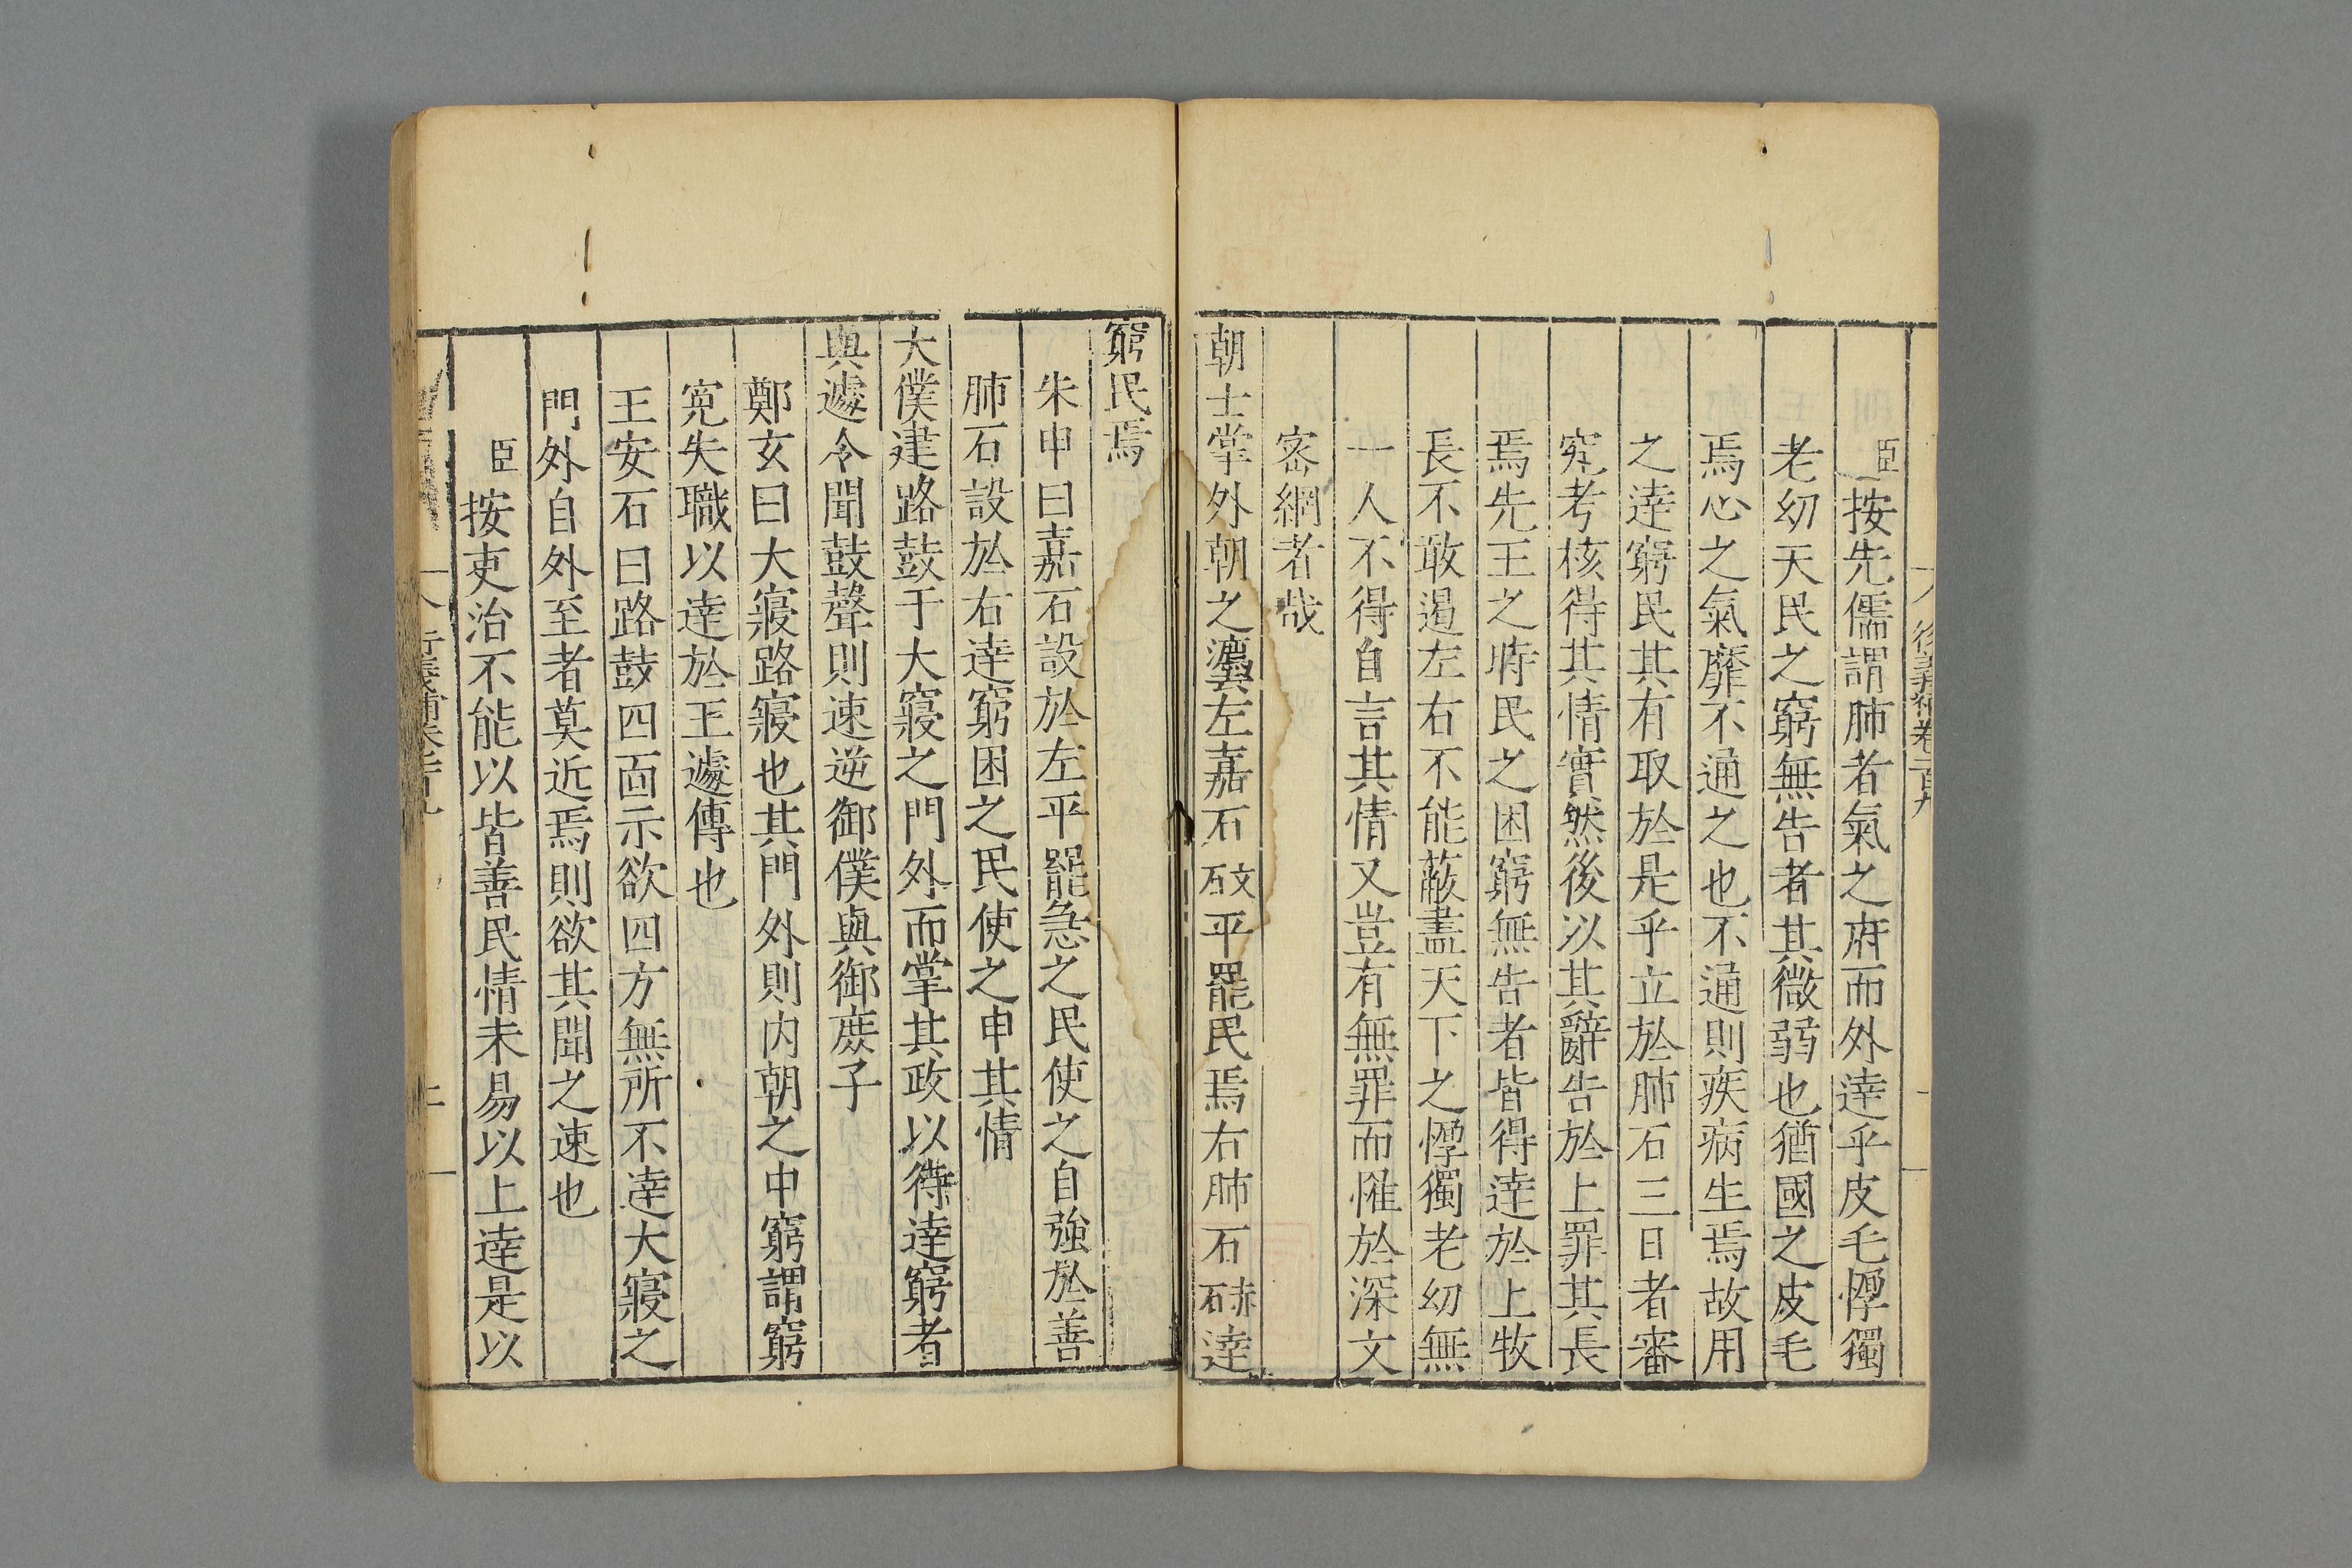 臣按先儒謂肺者氣之府而外達乎皮毛惸獨
老幼天民之窮無告者其微弱也猶國之皮毛
焉心之氣靡不通之也不通則疾病生焉故用
之達窮民其有取於是乎立於肺石三日者審
究考核得其情實然後以其辭告於上罪其長
焉先王之時民之困窮無告者皆得達於上牧
長不敢遏左右不能蔽盡天下之惸獨老幼無
一人不得自言其情又豈有無罪而罹於深文
密網者哉
朝士掌外朝之灋左嘉石文石平罷民焉右肺石赤石達
窮民焉
朱申曰嘉石設於左平罷急之民使之自強於善
肺石設於右達窮困之民使之申其情
大僕建路鼓于大寢之門外而掌其政以待達窮者
與遽令聞鼓聲則速逆御僕與御庶子
鄭玄曰大寢路寢也其門外則內朝之中窮謂窮
冤失職以達於王遽傳也
王安石曰路鼓四面示欲四方無所不達大寢之
門外自外至者莫近焉則欲其聞之速也
臣按吏治不能以皆善民情未易以上達是以